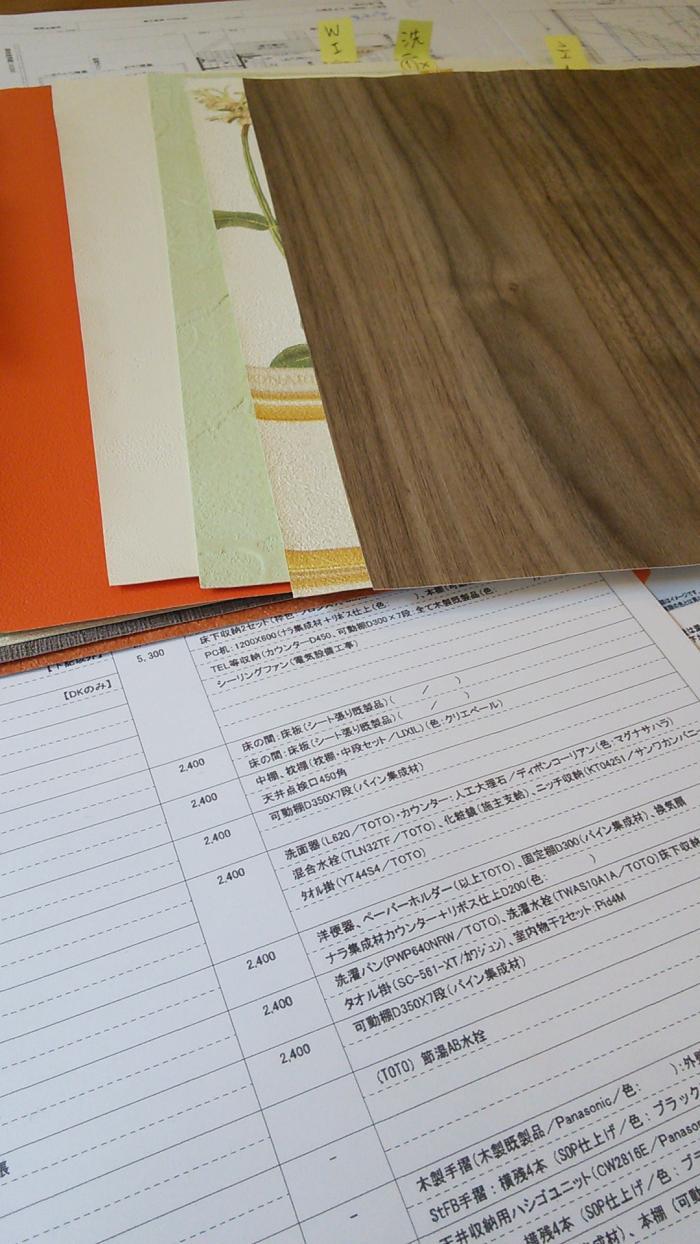 W
I
洗
【DKのみ】
5,300
PC机:1200X600(ナラ集成材+リボス仕上(色:
TEL等収納(カウンターD450、可動棚D300×7段 全て木製既製品(色:
シーリングファン(電気設備工事)
床の間:床板(シート張り既製品)( / )
床の間:床板(シート張り既製品)( / )
2,400
中棚、枕棚(枕棚・中段セット/LIXIL)(色:クリエペール)
天井点検口450角
2,400
可動棚D350X7段(パイン集成材)
2,400
洗面器(L620/TOTO)・カウンター・人工大理石/ディポンコーリアン(色:マグナサハラ)
混合水栓(TLN32TF/TOTO)、化粧鏡(施主支給)、ニッチ収納(KT04251/サンワカンパニー
2,400
タオル掛(YT44S4/TOTO)
洋便器、ペーパーホルダー(以上TOTO)、固定棚D300(パイン集成材)、換気扇
ナラ集成材カウンター+リボス仕上D200(色: )
2,400
洗濯パン(PWP640NRW/TOTO)、洗濯水栓(TWAS10A1A/TOTO)床下収納
タオル掛(SC-561-XT/カワジュン)、室内物干2セット:Pid4M
2,400
可動棚D350X7段(パイン集成材)
2,400
(TOTO) 節湯AB水栓
-
木製手摺(木製既製品/Panasonic/色: ):外
StFB手摺:横残4本(SOP仕上げ/色:ブラック
-
天井収納用ハシゴユニット(CW2816E/Panaso
横残4本(SOP仕上げ/色:ブラ
成材)、本棚(可動